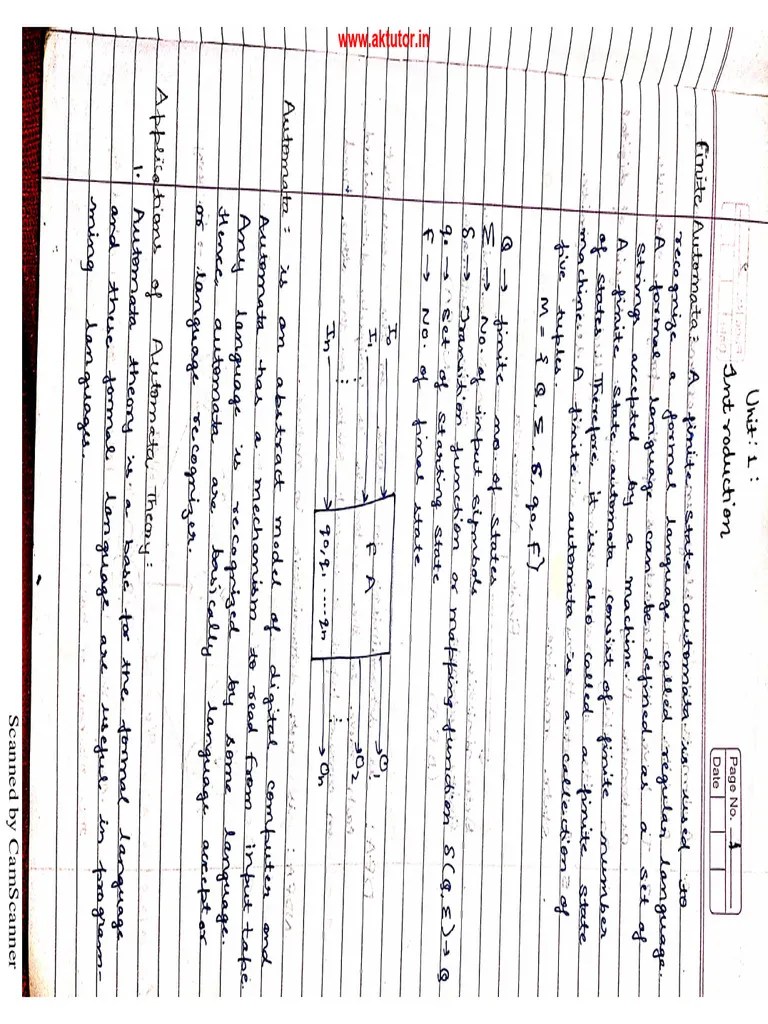 www.aktutor.in
Page No. 1
Date
Unit: 1:
Introduction
Finite Automata: A finite state automata is used to
recognize a formal language called regular language.
A formal language can be defined as a set of
strings accepted by a machine.
A finite state automata consist of finite number
of states. Therefore, it is also called a finite state
machine. A finite automata is a collection of
five tuples.
M = { Q, Σ, δ, q0, F }
Q → finite no. of states
Σ → No. of input symbols
δ → Transition function or mapping function δ(Q, Σ) → Q
q0 → Set of starting state
F → No. of final state
I0
I1
⋮
In
FA
q0, q1 .... qn
O1
O2
⋮
On
Automata: is an abstract model of digital computer and
Automata has a mechanism to read from input tape.
Any language is recognized by some language.
Hence, automata are basically language acceptor
or language recognizer.
Applications of Automata Theory:
1. Automata theory is a base for the formal language
and these formal language are useful in program-
ming languages.
Scanned by CamScanner